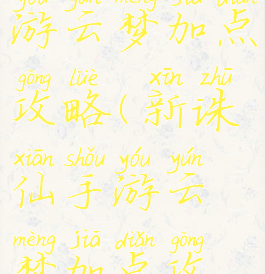 yóu yún mèng jiā diǎn
游云梦加点
gōng lüè xīn zhū
攻略(新诛
xiān shǒu yóu yún
仙手游云
mèng jiā diǎn gōng
梦加点攻